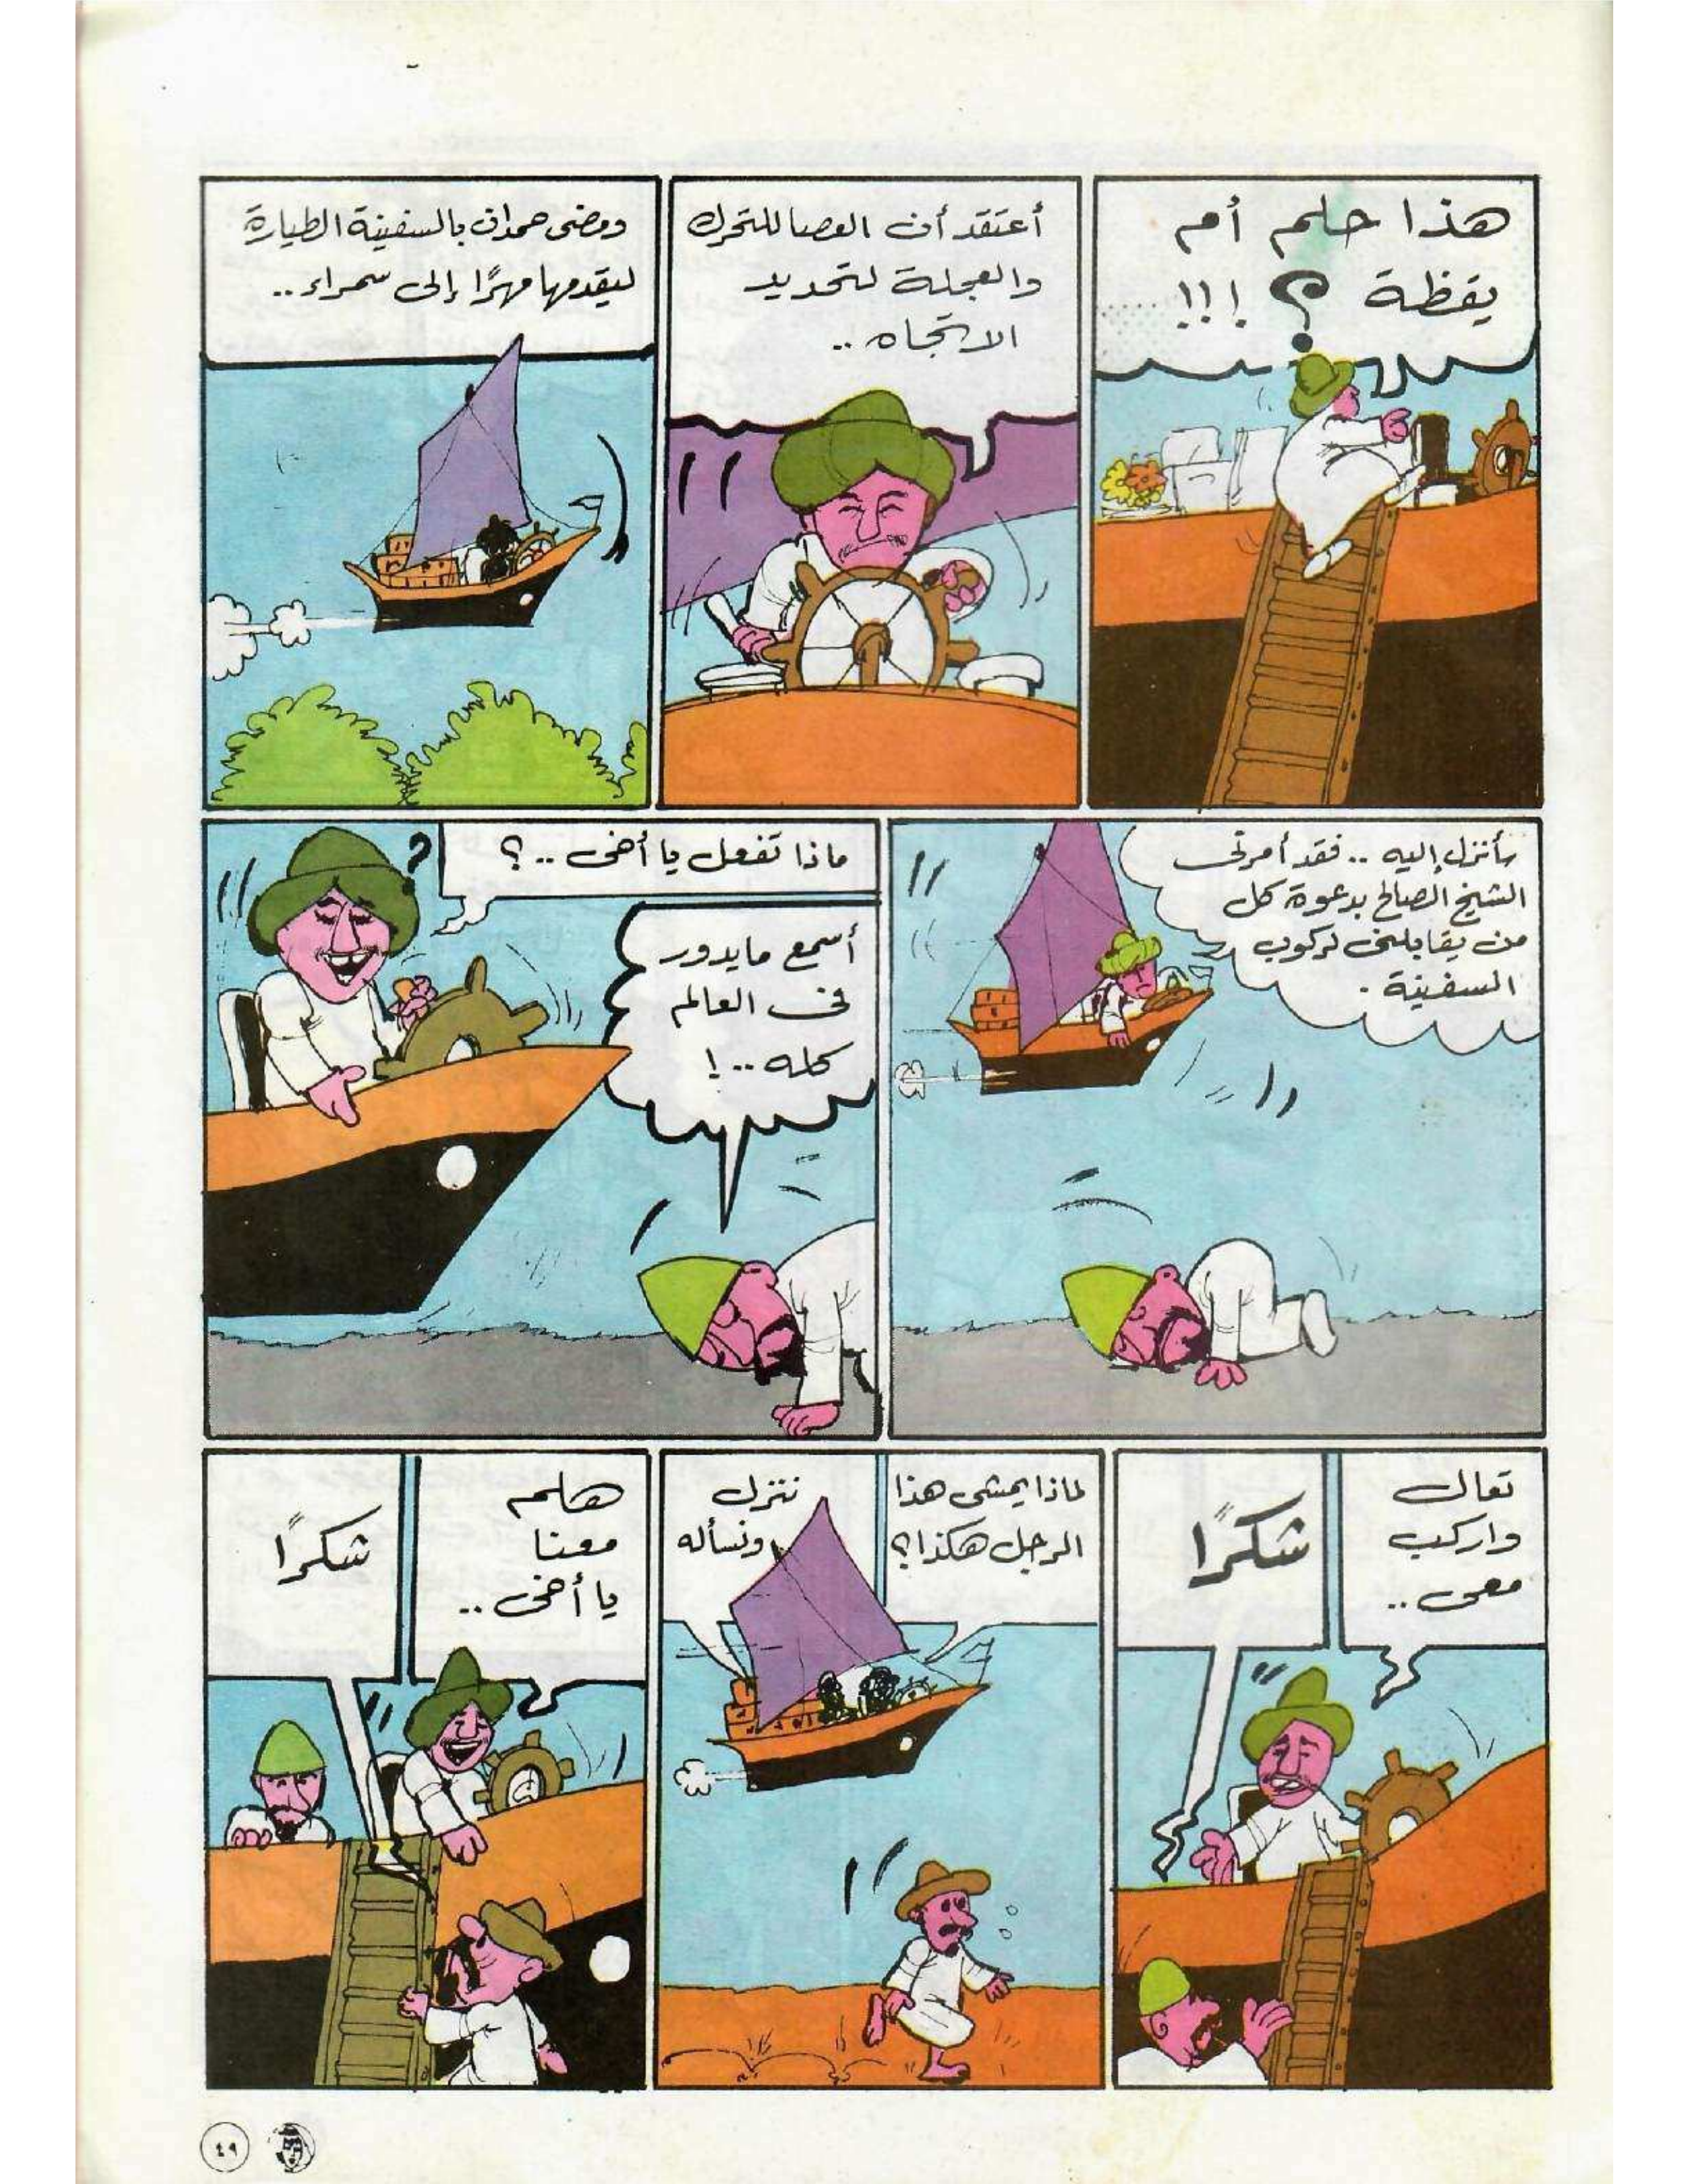 هذا حلم أم
يقظة ؟ !!!
أعتقد أن العصا للتحرك
والعجلة لتحديد
الاتجاه ..
ومضى حمدان بالسفينة الطيارة
ليقدمها مهرًا إلى سمراء ..
سأنزل إليه .. فقد أمرنى
الشيخ الصالح بدعوة كل
من يقابلنى لركوب
السفينة .
ماذا تفعل يا أخى .. ؟
?
أسمع مايدور
فى العالم
كله .. !
تعال
واركب
معى ..
شكرًا
لماذا يمشى هذا
الرجل هكذا؟
ننزل
ونسأله
هلم
معنا
يا أخى ..
شكرًا
٤٩